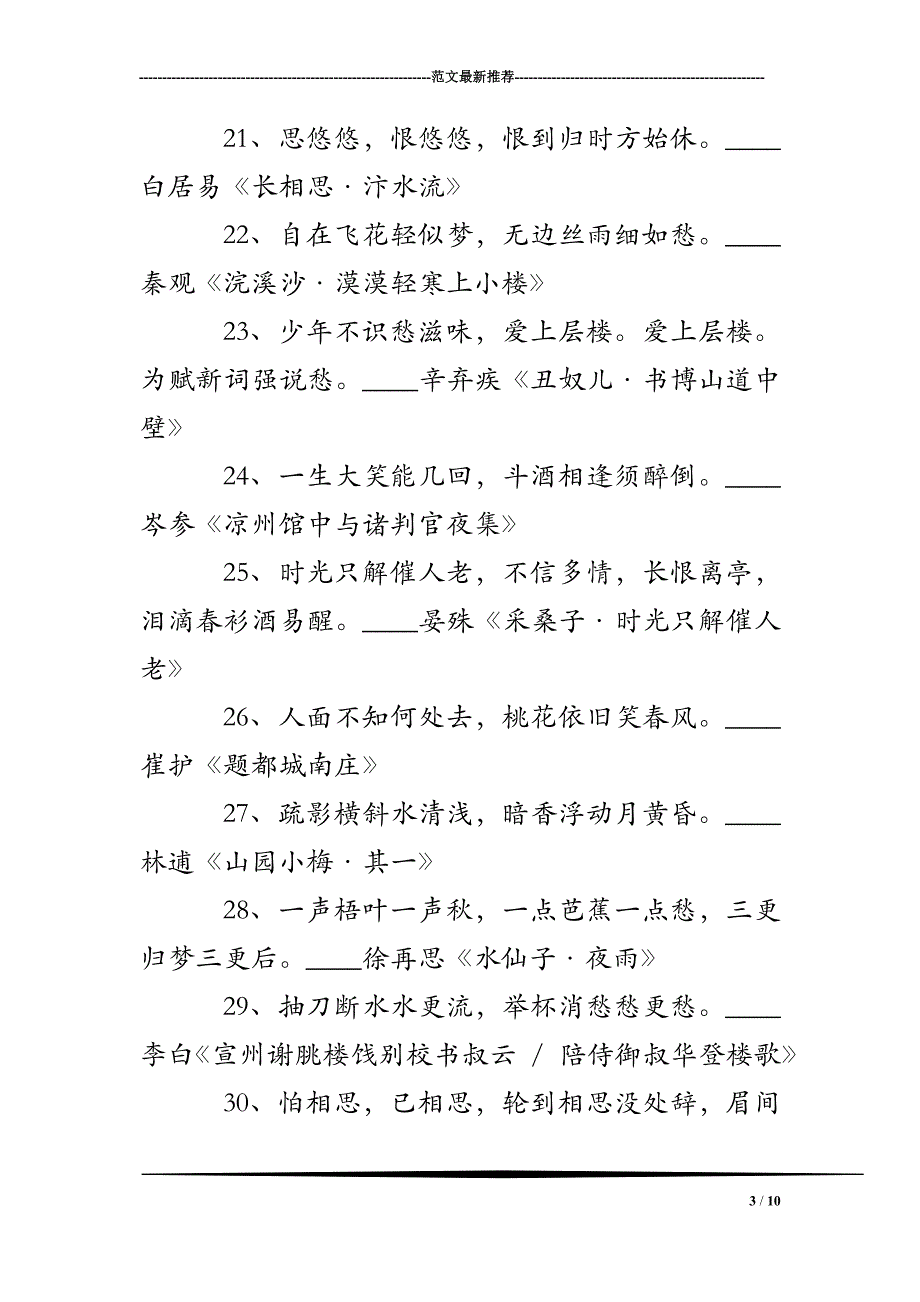 ----------------------------------------------------------------范文最新推荐------------------------------------------------------
21、思悠悠，恨悠悠，恨到归时方始休。____
白居易《长相思·汴水流》
22、自在飞花轻似梦，无边丝雨细如愁。____
秦观《浣溪沙·漠漠轻寒上小楼》
23、少年不识愁滋味，爱上层楼。爱上层楼。
为赋新词强说愁。____辛弃疾《丑奴儿·书博山道中
壁》
24、一生大笑能几回，斗酒相逢须醉倒。____
岑参《凉州馆中与诸判官夜集》
25、时光只解催人老，不信多情，长恨离亭，
泪滴春衫酒易醒。____晏殊《采桑子·时光只解催人
老》
26、人面不知何处去，桃花依旧笑春风。____
崔护《题都城南庄》
27、疏影横斜水清浅，暗香浮动月黄昏。____
林逋《山园小梅·其一》
28、一声梧叶一声秋，一点芭蕉一点愁，三更
归梦三更后。____徐再思《水仙子·夜雨》
29、抽刀断水水更流，举杯消愁愁更愁。____
李白《宣州谢朓楼饯别校书叔云 / 陪侍御叔华登楼歌》
30、怕相思，已相思，轮到相思没处辞，眉间
3 / 10